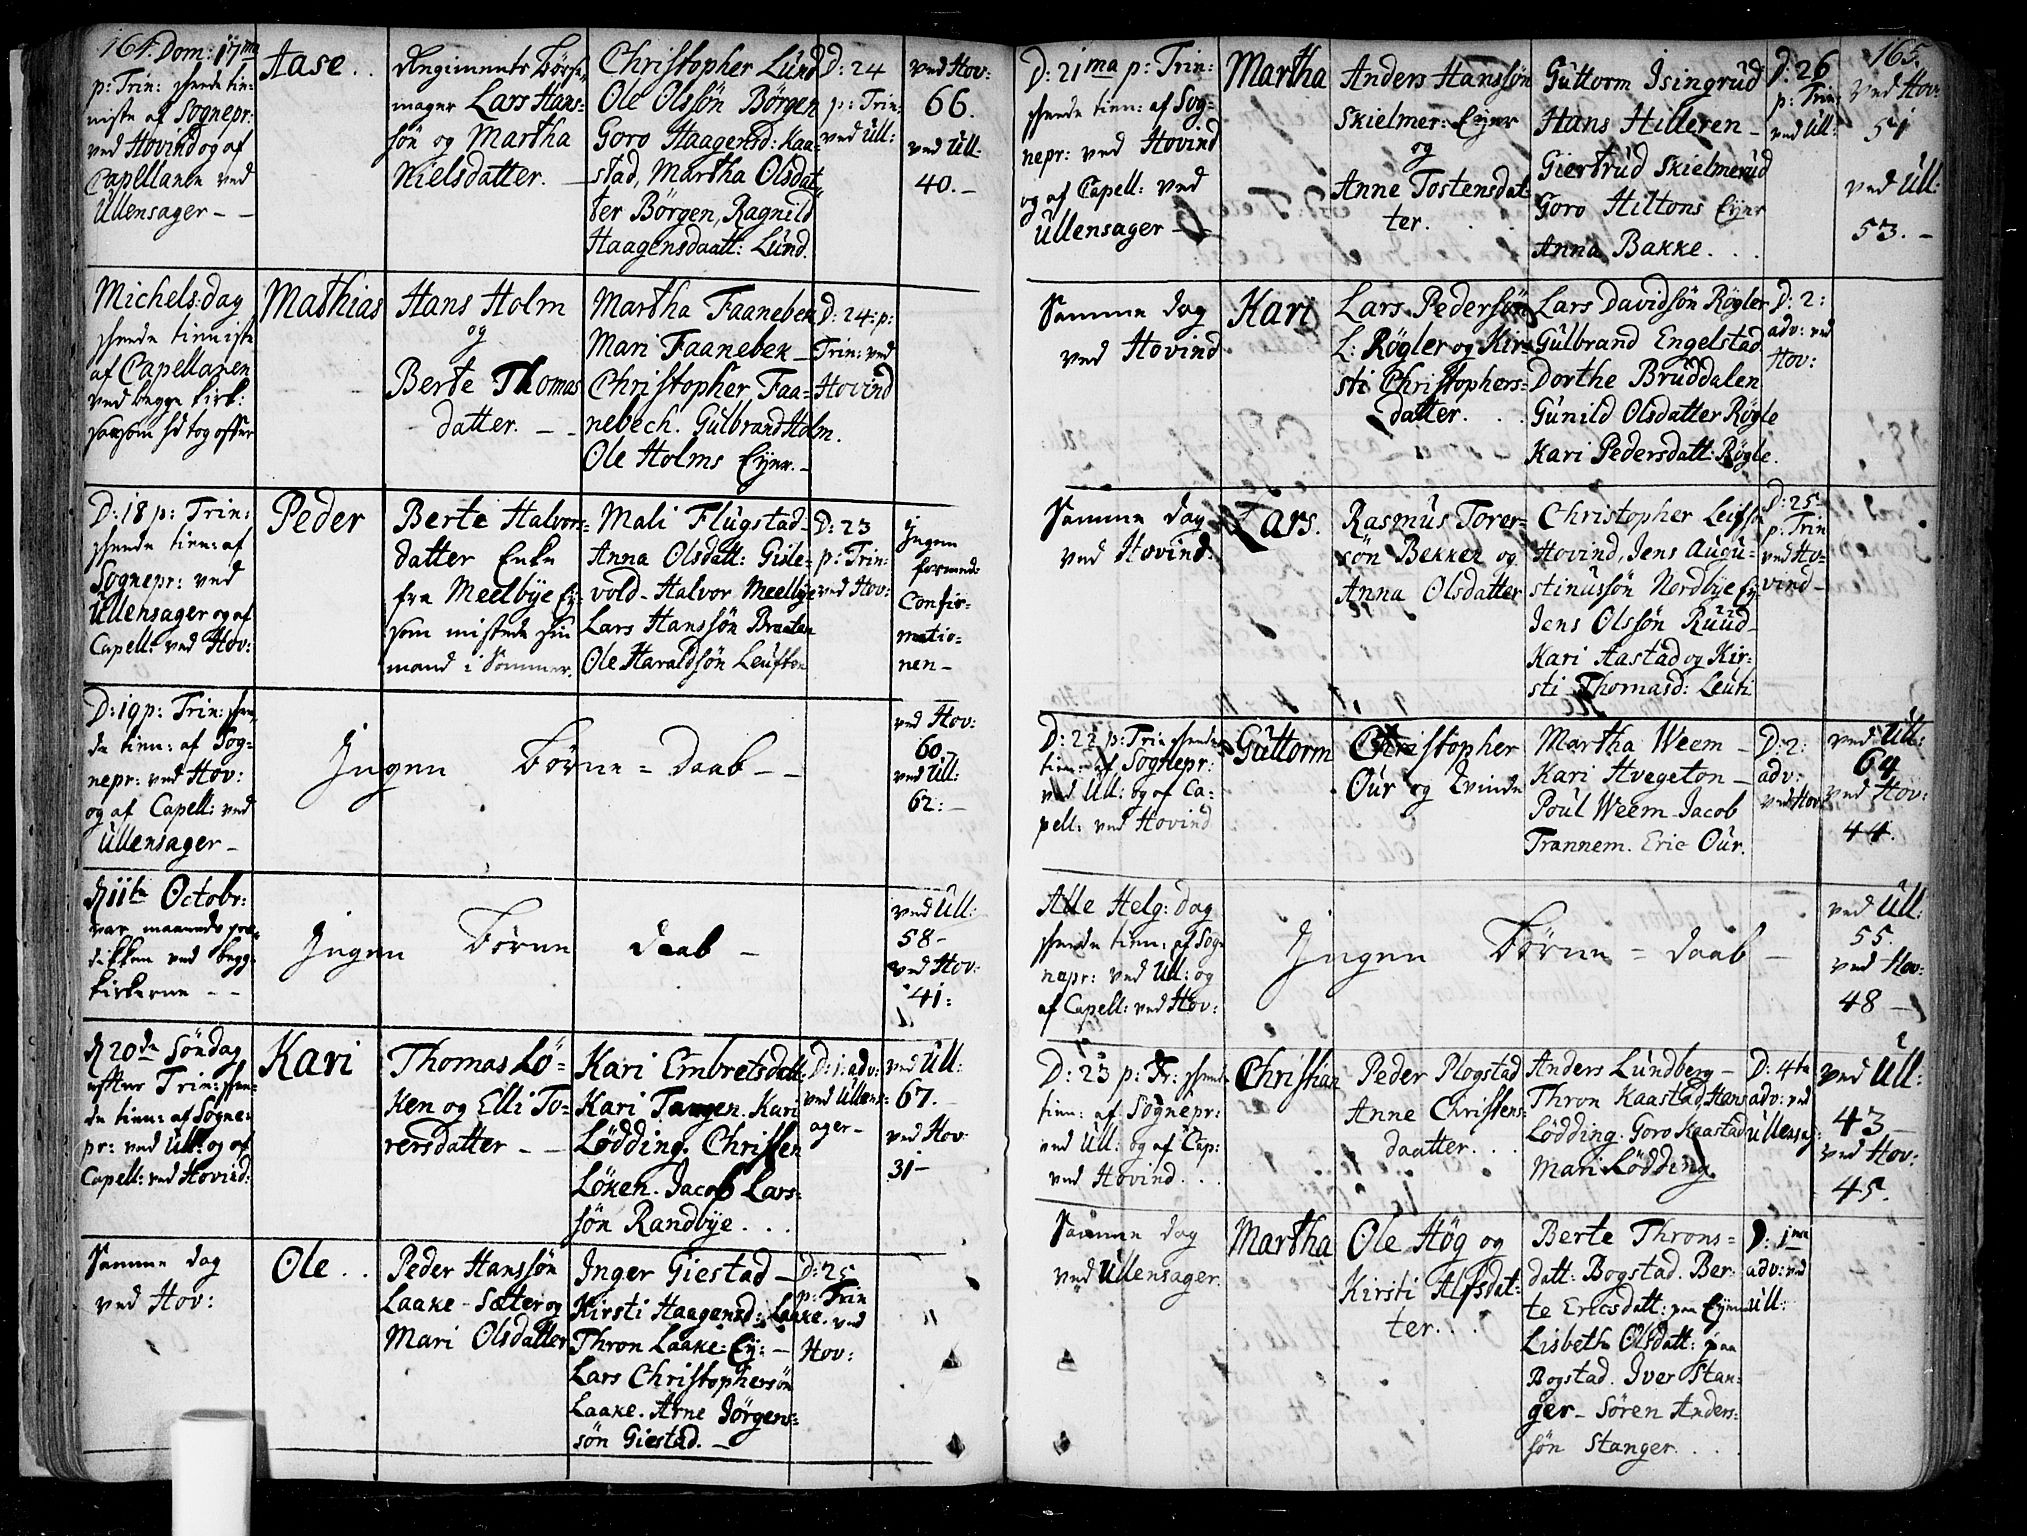 164. Dom: 17ma
p: Trin: skeede tie-
niste af Sognepr:
ved Hovind og af
Capellanen ved
Ullensager - -
Aase . .
Regiments Bösse-
mager Lars Hans-
søn og Martha
Nielsdatter. -
Christopher Lund
Ole Olssøn Børgen
Goro Haagensd: Kaa-
stad, Martha Olsdat-
ter Børgen, Ragnild
Haagensdaatt: Lund.
D: 24
p: Trin:
ved Ull:
ved Hov:
66.
ved Ull:
40. -
Michels dag
skeede tieniste
af Capellanen
ved begge Kirk:
saasom hd tog offer
Mathias
Hans Holm
og
Berte Thomas
datter. - -
Martha Faanebek
Mari Faanebek -
Christopher Faa-
nebech. Gulbrand Holm.
Ole Holms Eyer. -
D: 24: p:
Trin: ved
Hovind
D: 18 p: Trin:
skeede tien: af
Sognepr: ved
Ullensager og af
Capell: ved Hov:
Peder
Berte Halvors-
datter Enke
fra Meelbye Ey-
som mistede sin
mand i Sommer.
Mali Flugstad -
Anna Olsdatt: Gisle-
vold - Halvor Meelbye
Lars Hanssøn Braaten
Ole Haraldsøn Leufsten
D: 23
p: Trin:
ved Hov:
Ingen
formed:
Confir-
matio-
nen -
D: 19 p: Trin: skee-
de tien: af Sog-
nepr: ved Hov:
og af Capell: ved
Ullensager -
Ingen Børne = daab - -
ved Hov:
60 -
ved Ull:
62: -
d 11te Octobr:
var maaneds præ-
dikken ved begge
Kirkerne - -
Ingen Børne daab -
ved Ull:
58 -
ved Hov:
41:
d 20de Søndag
efter Trin: skee-
de tien: af Sogne-
pr: ved Ull: og af
Capell: ved Hovind:
Kari
Thomas Lø-
ken og Elli To-
rersdatter - -
Kari Embretsdatt
Kari Tangen. Kari
Lødding. Christen
Løken. Jacob Lars-
søn Randbye . . .
D: 1: adv:
ved Ullens-
ager -
ved Ull:
67. -
ved Hov:
31 -
Samme dag
ved Hov:
Ole . .
Peder Hanssøn
Laake - Sæter og
Mari Olsdatter
Inger Giestad -
Kirsti Haagensd: Laake.
Thron Laake: Ey: -
Lars Christophersøn
Laake. Arne Jørgens-
søn Giestad. -
D: 25
p: Trin
ved
Hov:
165.
D: 21ma p: Trin:
skeede tien: af Sog-
nepr: ved Hovind
og af Capell: ved
Ullensager -
Martha
Anders Hanssøn
Skielmer: Eyer
og
Anne Tostensdat-
ter. .
Guttorm Isingrud
Hans Hilleren -
Giertrud Skielmerud
Goro Hiltons Eyer
Anna Bakke . . .
D: 26
p: Trin:
ved Ull:
ved Hov:
51
ved Ull:
53. -
Samme dag
ved Hovind
Kari
Lars Pedersøn
L: Røgler og Kir-
sti Christophers-
datter. . .
Lars Davidsøn Røgler
Gulbrand Engelstad
Dorthe Bruddalen
Gunild Olsdatter Røgle
Kari Pedersdatt: Røgle.
D: 2:
adv: ved
Hov:
Samme dag
ved Hovind:
Lars.
Rasmus Torer-
søn Bekken og
Anna Olsdatter
Christopher Leifsø
Hovind, Jens Augu-
stinussøn Nordbye Ey
Jens Olssøn Ruud -
Kari Aastad og Kir-
sti Thomasd: Leuti
D: 25
p: Trin
ved Ho-
vind -
D: 22 p: Trin: skeede
tien: af Sognepr:
ved Ull: og af Ca-
pell: ved Hovind
Guttorm
Christopher
Our og Qvinde
Martha Weem -
Kari Hvegeton -
Poul Weem - Jacob
Trannem. Eric Our.
D: 2:
adv:
ved Hov:
ved Ull:
64
ved Hov:
44.
Alle Helg: dag
skeede tien: af Sog-
nepr: ved Ull: og
af Capell: ved Hov:
Ingen Børne = daab -
ved Ull:
55.
ved Hov:
48 -
D: 23 p: Tr: skeede
tien: af Sognepr:
ved Ull: og af Cap:
ved Hovind . . .
Christian
Peder Plogstad
Anne Christens-
daatter. . .
Anders Lundberg -
Thron Kaastad, Hans
Lødding. Goro Kaastad
Mari Lødding.
D: 4te
adv: ved
Ullensag:
ved Ull:
43 -
ved Hov:
45.
Samme dag
ved Ullensager.
Martha
Ole Høg og
Kirsti Alfsdat-
ter. . .
Berte Throns-
datt: Bogstad. Ber-
te Ericsdatt: paa Eyer
Lisbeth Olsdatt: paa
Bogstad. Iver Stan-
ger - Søren Anders-
søn Stanger . . .
D: 1ma
adv: ved
Ull: